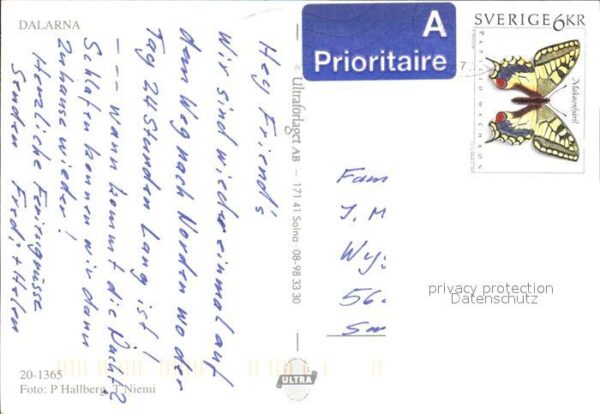 DALARNA
Hey Friend's
Wir sind wieder einmal auf
dem Weg nach Norden wo der
Tag 24 Stunden Lang ist!
--- wann kommt die Nacht?
Schlafen können wir dann
Zuhause wieder!
Herzliche Feriengrüsse
Senden Fredi + Helen
20-1365
Foto: P Hallberg, T Niemi
Ultraförlaget AB - 171 41 Solna 08-98 33 30
ULTRA
A
Prioritaire
SVERIGE 6KR
PAPILIO MACHAON
Makaonfjäril
Fam
J. M
Wy
56.
privacy protection
Datenschutz